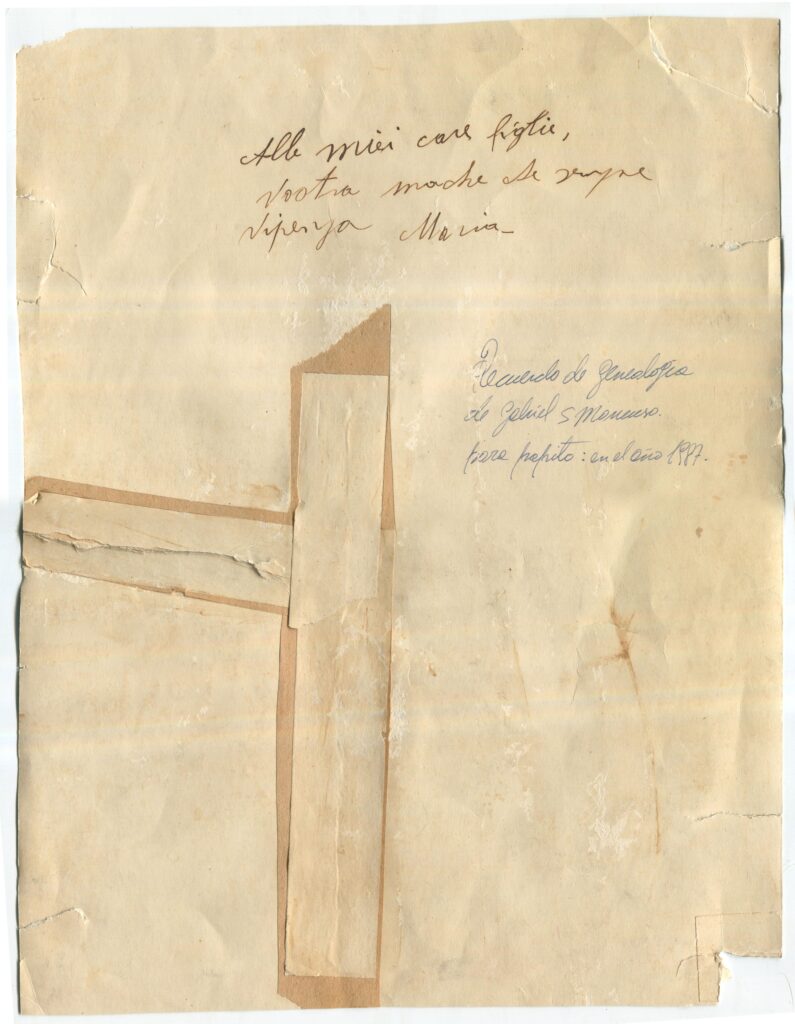 Alle miei care figlie,
Vostra madre che sempre
Vi pensa Maria
Recuerdo de genealogia
de Gabriel S Mancuso.
para papito: en el año 1987.